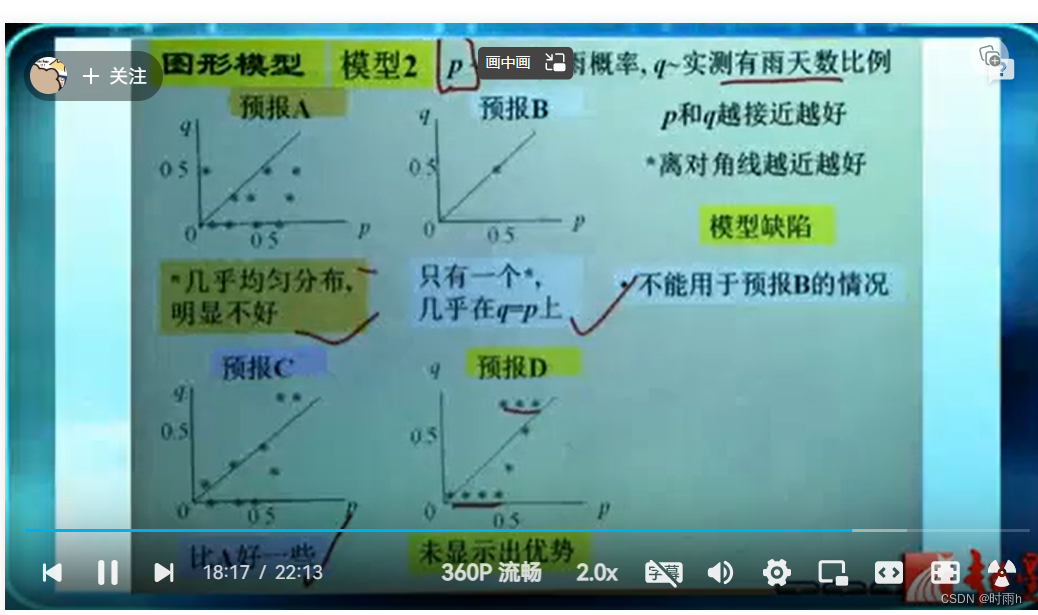 图形模型 模型2 p 画中画 雨概率, q~实测有雨天数比例
+ 关注
预报A
预报B
p和q越接近越好
*离对角线越近越好
q
0.5
0
0.5
p
q
0.5
0
0.5
p
模型缺陷
*几乎均匀分布,
明显不好
只有一个*,
几乎在q=p上
•不能用于预报B的情况
预报C
预报D
q
0.5
0
0.5
p
q
0.5
0
0.5
p
比A好一些
未显示出优势
18:17 / 22:13
360P 流畅
2.0x
字幕
CSDN @时雨h